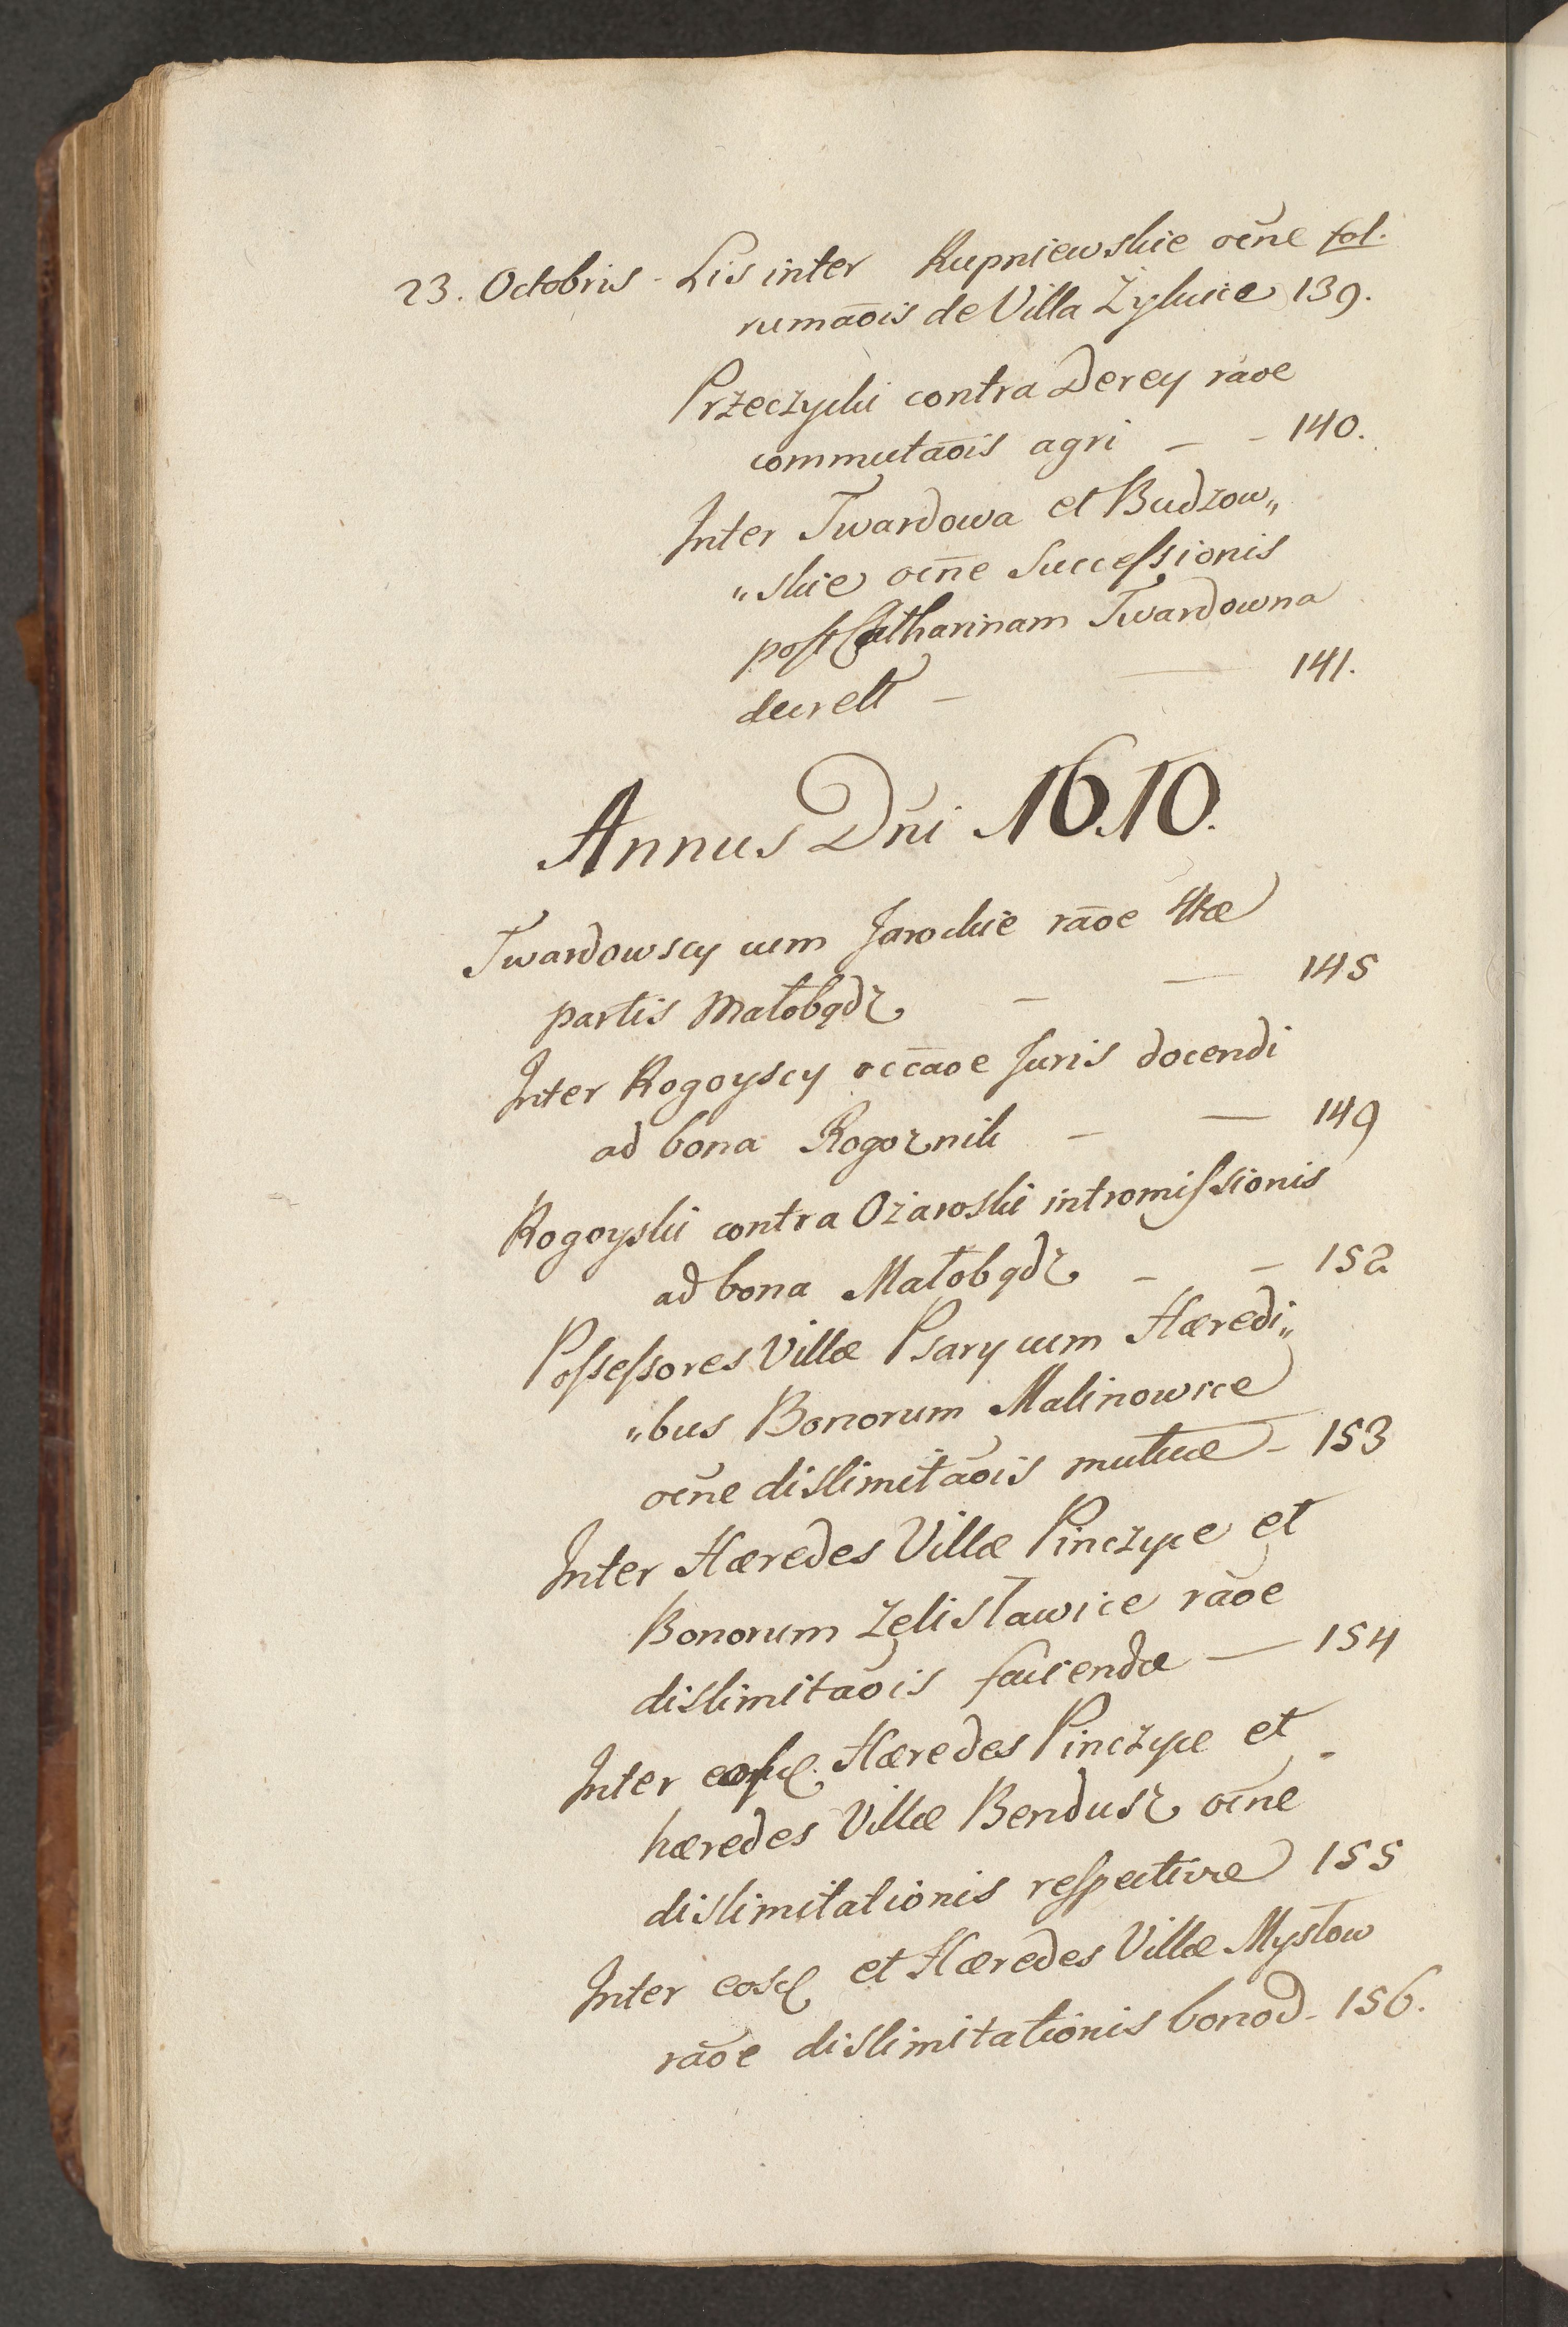 23. Octobris - Lis inter Rupniewskie ocñe fol.
rumaõis de Villa Zÿkuice 139.
Przeczycki contra Derey rãoe
commutaõis agri — - 140.
Inter Twardowa et Budzow„
„skie ocñe Succeſsionis
poſt Catharinam Twardowna
decrett — — 141.
Annus Dñi 1610.
Twardowscy cum Jarockie rãoe 4tæ
partis Małobądz — — 145
Inter Rogoyscy occãoe Juris docendi
ad bona Rogoznik — — 149
Rogoyski contra Ożaroski intromiſsionis
ad bona Małobądz — — 152
Poſseſsores Villæ Psary cum Hæredi„
„bus Bonorum Malinowice
ocñe dislimitãois mutuæ - 153
Inter Hæredes Villæ Pinczyce et
Bonorum Zelisławice rãoe
dislimitaõis faciendæ — 154
Inter Hæredes Pinczyce et
hæredes Villæ Bendusz ocñe
dislimitationis reſpective 155
Inter eosd et Hæredes Villæ Mysłow
rãoe dislimitationis bonod - 156.